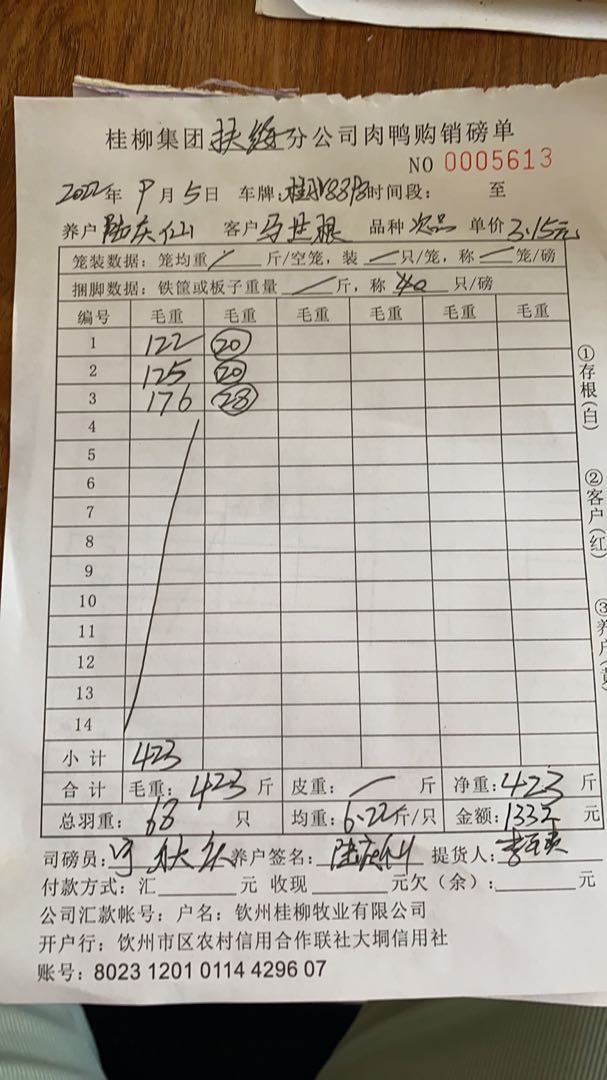 桂柳集团 分公司肉鸭购销磅单
NO 0005613
2022年 9月5日 车牌: 时间段: 至
养户 陆庆仙 客户 马世根 品种 次品 单价 3.15元
笼装数据: 笼均重 / 斤/空笼, 装 一 只/笼, 称 一 笼/磅
捆脚数据: 铁筐或板子重量 一 斤, 称 40 只/磅
编号 毛重 毛重 毛重 毛重 毛重 毛重
1 122 20
2 125 20
3 176 28
4
5
6
7
8
9
10
11
12
13
14
小计 423
合计 毛重: 423 斤 皮重: 一 斤 净重: 423 斤
总羽重: 68 只 均重: 6.22斤/只 金额: 1332元
司磅员: 养户签名: 陆庆仙 提货人:
付款方式: 汇 元 收现 元欠(余): 元
公司汇款帐号: 户名: 钦州桂柳牧业有限公司
开户行: 钦州市区农村信用合作联社大垌信用社
账号: 8023 1201 0114 4296 07
①存根(白)
②客户(红)
③养户(黄